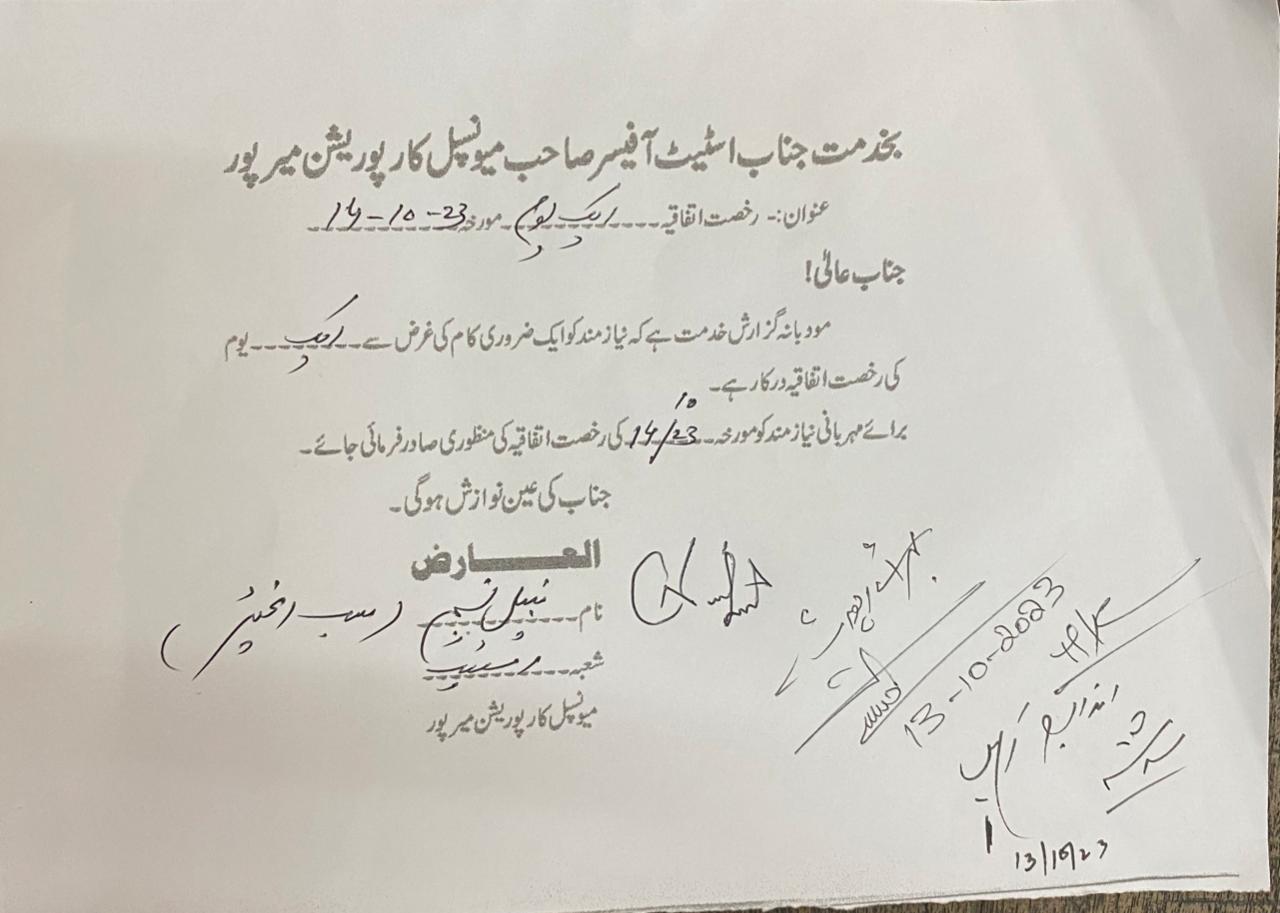 بخدمت جناب اسٹیٹ آفیسر صاحب میونسپل کارپوریشن میرپور
عنوان:- رخصت اتفاقیہ ایک یوم مورخہ 14-10-23
جناب عالیٰ!
مودبانہ گزارش خدمت ہے کہ نیازمند کو ایک ضروری کام کی غرض سے ایک یوم
کی رخصت اتفاقیہ درکار ہے۔
برائے مہربانی نیازمند کو مورخہ 14/10/23 کی رخصت اتفاقیہ کی منظوری صادر فرمائی جائے۔
جناب کی عین نوازش ہوگی۔
العارض
نام نبیل نسیم (سب انجینئر)
شعبہ اسٹیٹ
میونسپل کارپوریشن میرپور
13-10-2023
13/10/23